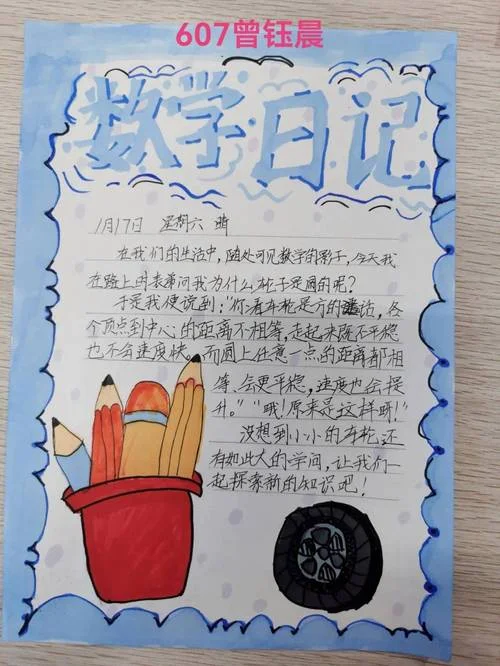 607曾钰晨
数学日记
1月17日 星期六 晴
在我们的生活中,随处可见数学的影子,今天我
在路上时表弟问我为什么轮子是圆的呢?
于是我便说到:"你看车轮是方的话,各
个顶点到中心的距离不相等,走起来既不平稳
也不会速度快。而圆上任意一点的距离都相
等,会更平稳,速度也会提
升。""哦!原来是这样呀!"
没想到小小的车轮,还
有如此大的学问,让我们一
起探索新的知识吧!